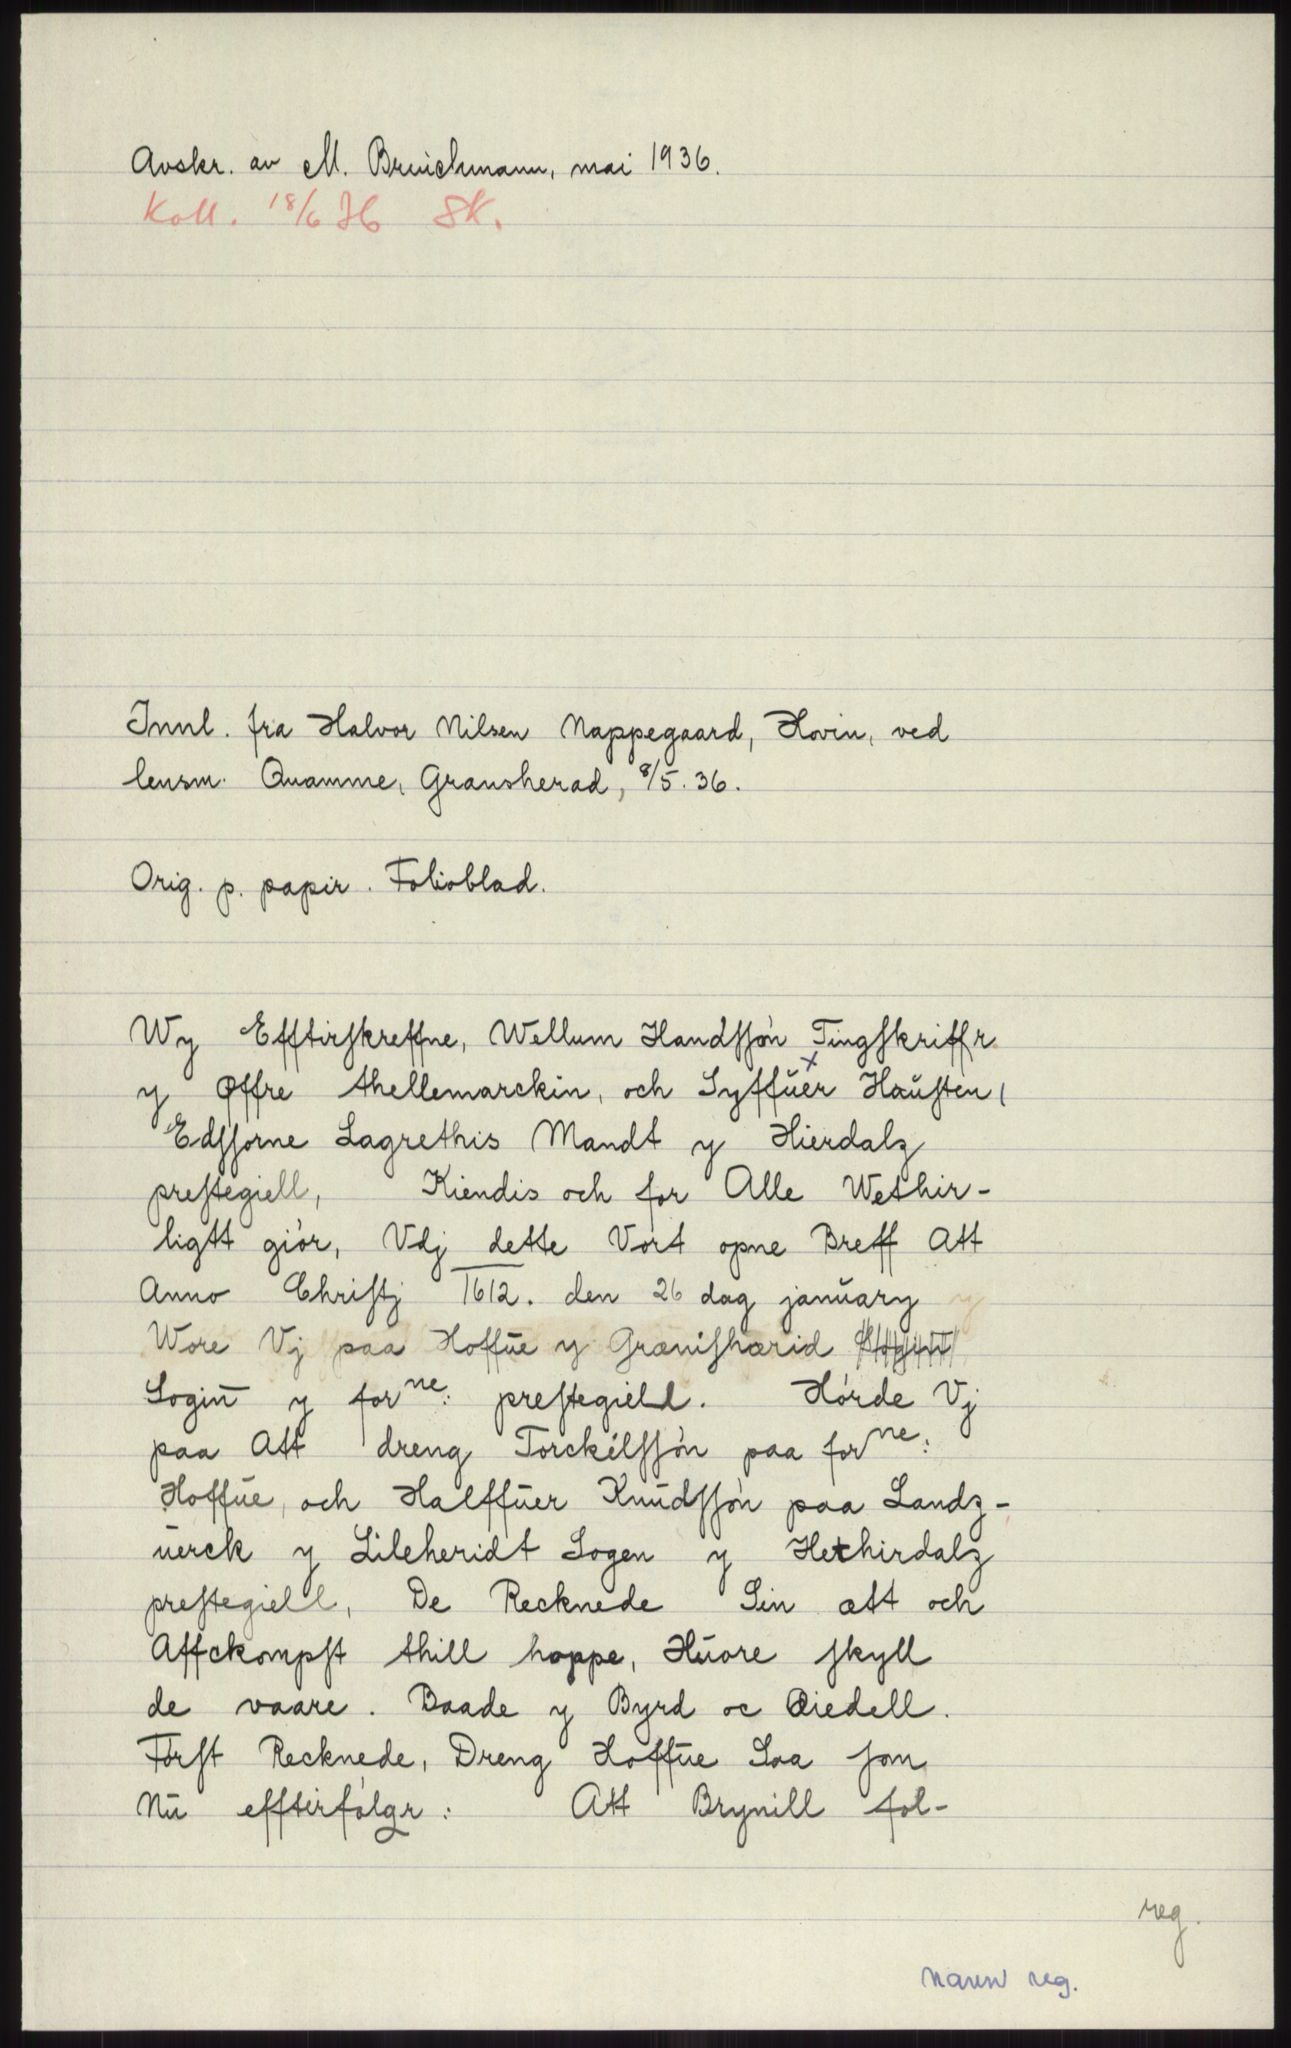 Avskr. av M. Bruichmann, mai 1936.
Koll. 18/6 36 SK.
Innl. fra Halvor Nilsen Nappegaard, Hovin, ved
lensm. Quamme, Gransherad, 8/5. 36.
Orig. p. papir. Folioblad.
Wy Efftirſkreffne, Wellum Handſſøn Tingſkriffr
y Øffre thellemarckin, och Syffuer Hauſten,
Edſſorne Lagrethis Mandt y Hierdalz
preſtegiell, Kiendis och for Alle Wethir-
ligtt giør, Vdj dette Vort opne Breff Att
Anno Chriſtj 1612. den 26 dag january y
Wore Vj paa Hoffue y Græniſhærid
Sogin y forne: preſtegield. Hørde Vj
paa Att dreng Torckilſſøn paa forne:
Hoffue, och Halffuer Knudſſøn paa Landz-
uerck y Lileheridt Sogen y Hethirdalz
preſtegiell, De Recknede Sin ætt och
Affckompſt thill hoppe, Huore ſkyll
de vaare. Baade y Byrd oc Qiedell.
Førſt Recknede, Dreng Hoffue Saa ſom
Nu efftirfølgr: Att Brynill fol-
reg.
Navn reg.